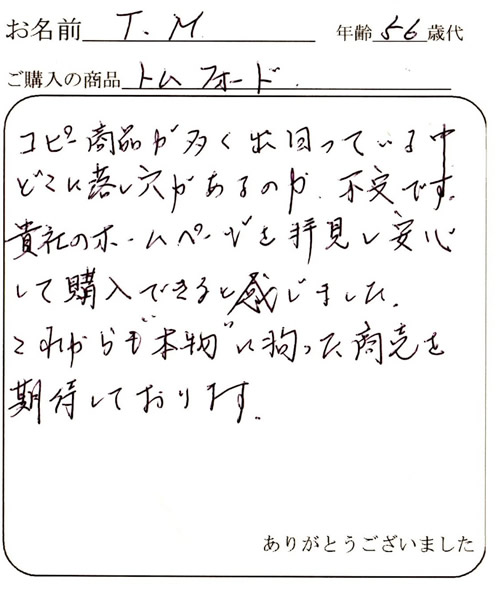 お名前 T.M 年齢 56 歳代
ご購入の商品 トムフォード
コピー商品が多く出回っている中
どこに落し穴があるのか、不安です。
貴社のホームページを拝見し安心
して購入できると感じました。
これからも"本物"に拘った商売を
期待しております。
ありがとうございました